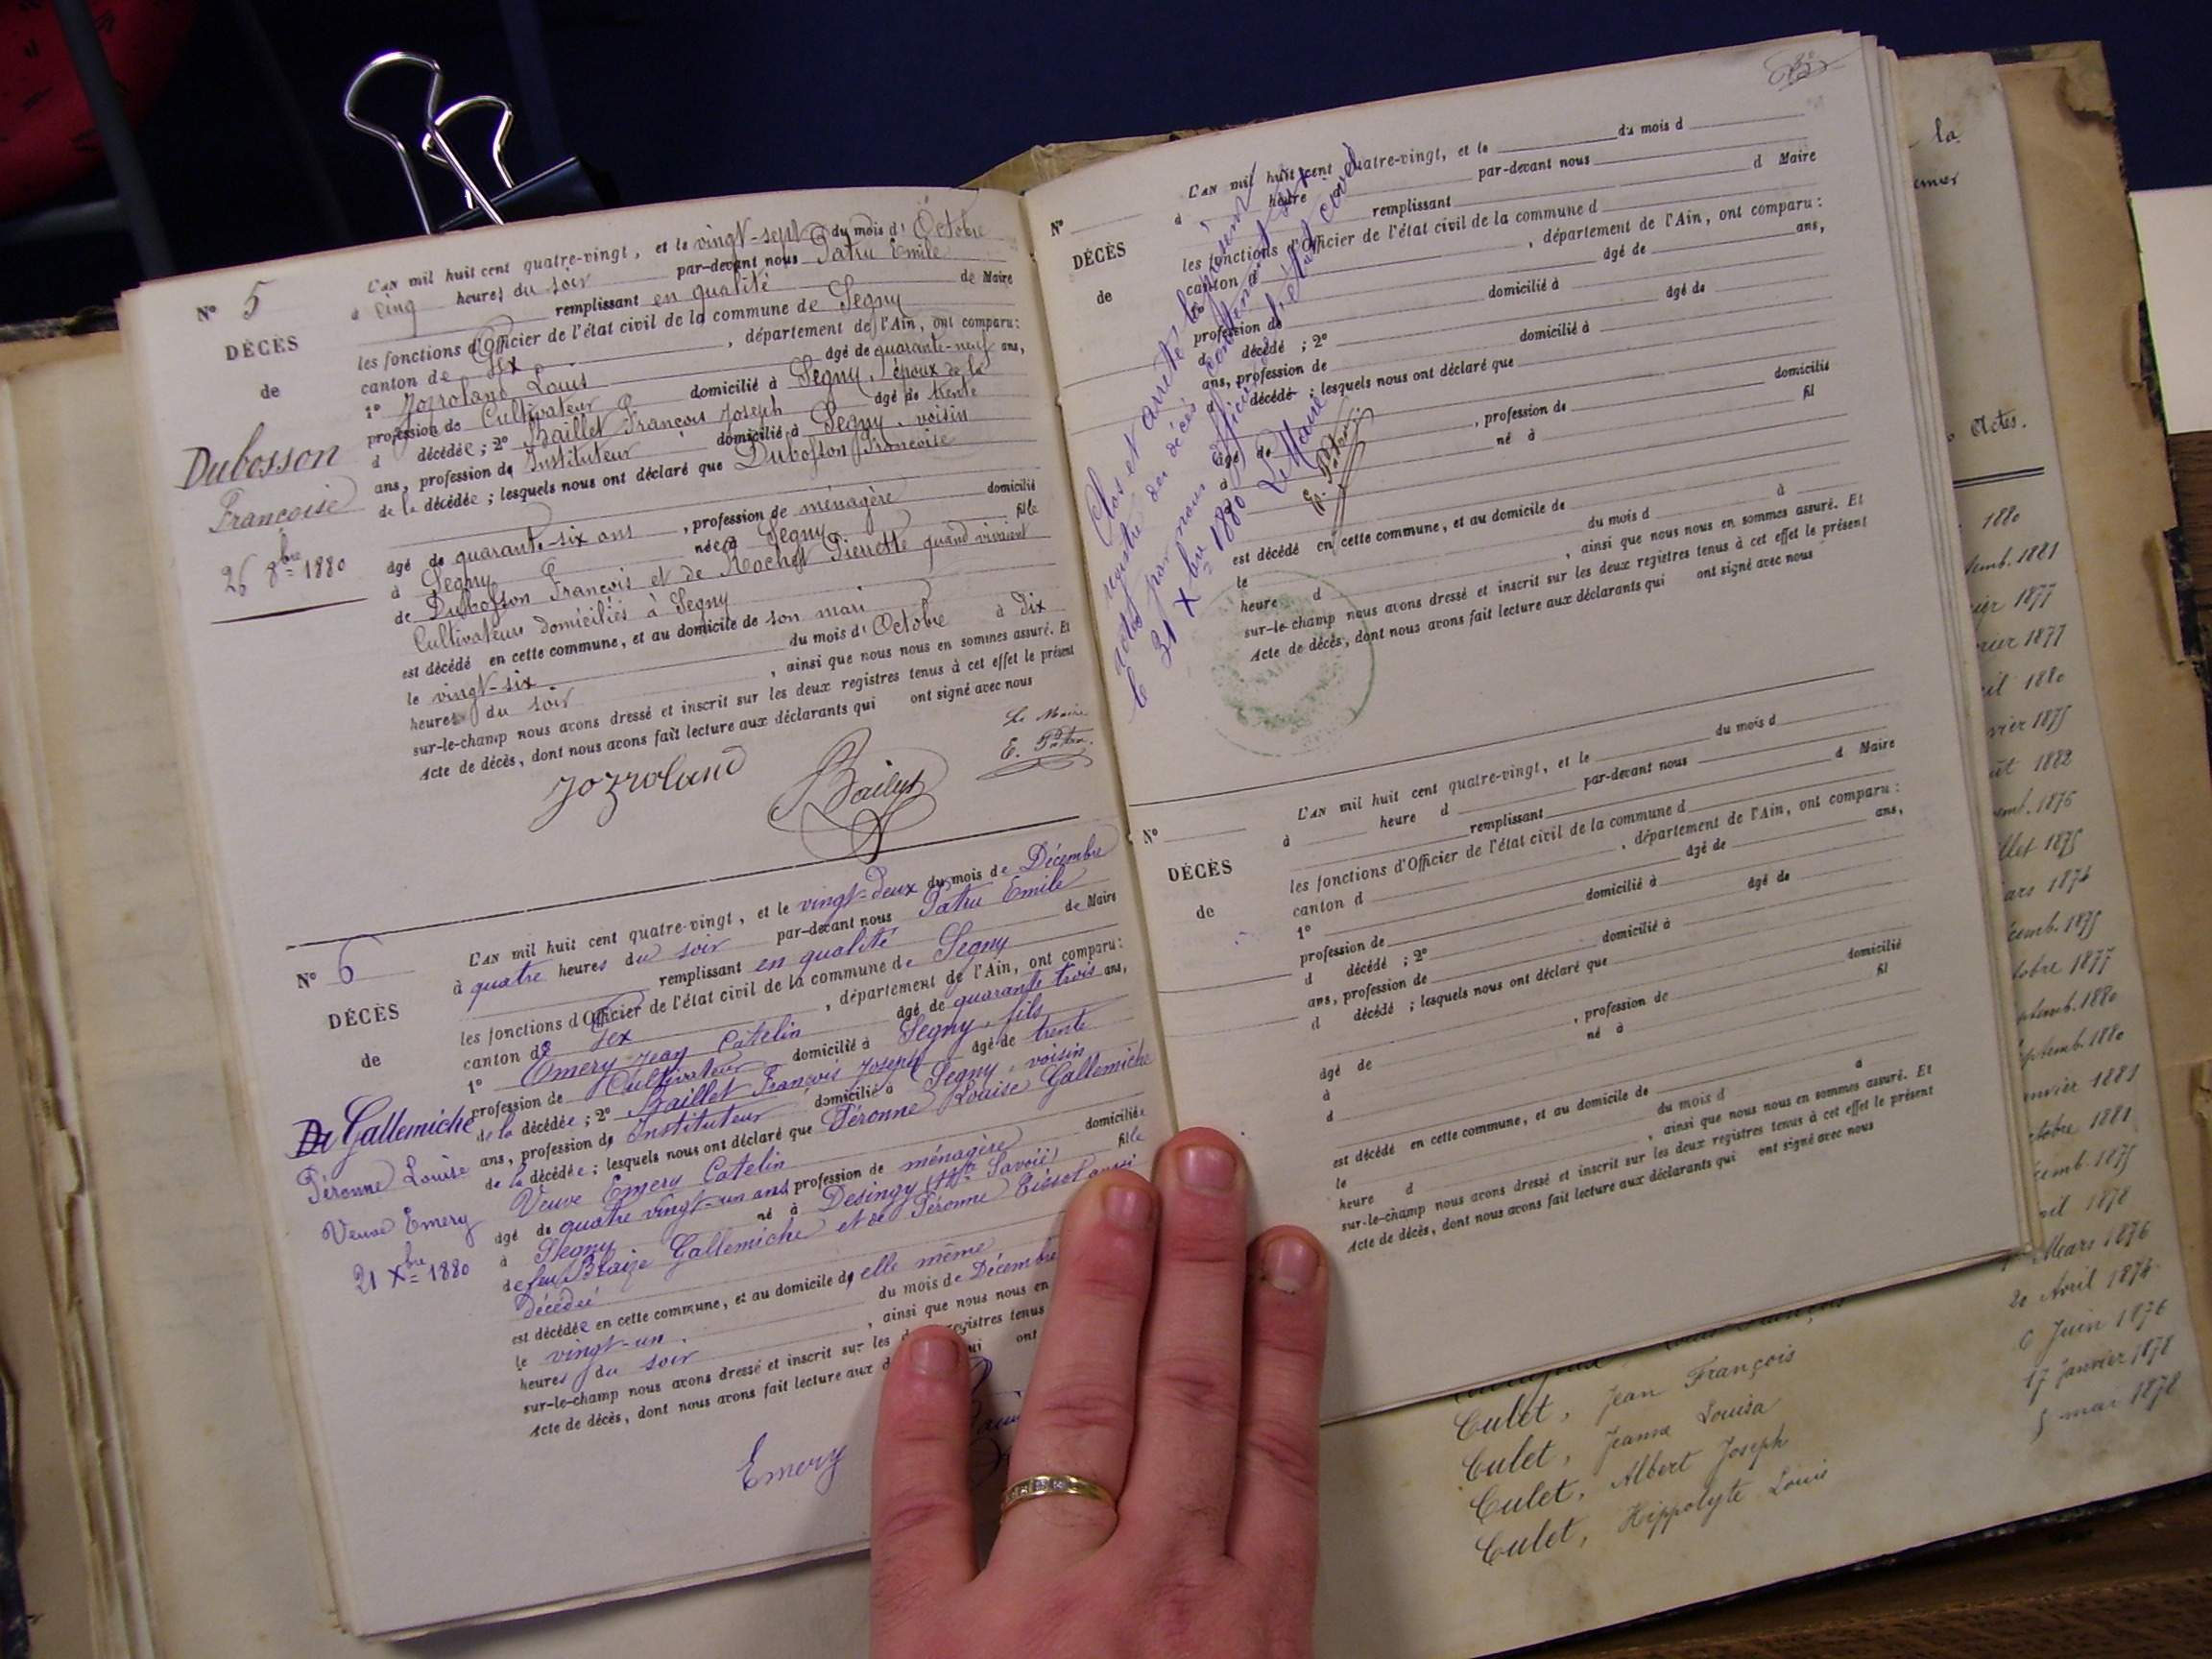 N° 5
DÉCÈS
de
Dubosson
Françoise
26 8bre 1880
L'AN mil huit cent quatre-vingt, et le vingt-sept du mois d' Octobre
à cinq heures du soir par-devant nous Patru Emile
remplissant en qualité de Maire
les fonctions d'Officier de l'état civil de la commune de Segny
canton de Gex, département de l'Ain, ont comparu:
1° Jozroland Louis âgé de quarante-neuf ans,
profession de Cultivateur domicilié à Segny, époux de la
d décédée; 2° Baillet François Joseph âgé de trente
ans, profession de Instituteur domicilié à Segny, voisin
de la décédée; lesquels nous ont déclaré que Dubosson Françoise
âgé de quarante-six ans, profession de ménagère domicilié
à Segny née à Segny fille
de Dubosson François et de Rochet Pierrette quand vivaient
Cultivateurs domiciliés à Segny
est décédé en cette commune, et au domicile de son mari
le vingt-six du mois d' Octobre à dix
heures du soir, ainsi que nous nous en sommes assuré. Et
sur-le-champ nous avons dressé et inscrit sur les deux registres tenus à cet effet le présent
Acte de décès, dont nous avons fait lecture aux déclarants qui ont signé avec nous
Le Maire
Jozroland
E. Patru.
N° 6
DÉCÈS
de
Gallemiche
Péronne Louise
Veuve Emery
21 Xbre 1880
L'AN mil huit cent quatre-vingt, et le vingt-deux du mois de Décembre
à quatre heures du soir par-devant nous Patru Emile
remplissant en qualité de Maire
les fonctions d'Officier de l'état civil de la commune de Segny
canton de Gex, département de l'Ain, ont comparu:
1° Emery Jean Catelin âgé de quarante trois ans,
profession de Cultivateur domicilié à Segny, fils
de la décédée; 2° Baillet François Joseph âgé de trente
ans, profession de Instituteur domicilié à Segny, voisin
de la décédée; lesquels nous ont déclaré que Péronne Louise Gallemiche
Veuve Emery Catelin
âgé de quatre vingt-un ans, profession de ménagère domiciliée
à Segny né à Desingy (Hte Savoie) fille
de feu Blaize Gallemiche et de Péronne
décédée
est décédée en cette commune, et au domicile de elle même
le vingt-un du mois de Décembre
heures du soir, ainsi que nous nous en
sur-le-champ nous avons dressé et inscrit sur les registres tenus
Acte de décès, dont nous avons fait lecture aux ont
Emery
N°
DÉCÈS
de
L'AN mil huit cent quatre-vingt, et le du mois d
à heure par-devant nous
remplissant d Maire
les fonctions d'Officier de l'état civil de la commune d
canton d, département de l'Ain, ont comparu:
1° âgé de ans,
profession de domicilié à
d décédé; 2° âgé de
ans, profession de domicilié à
d décédé; lesquels nous ont déclaré que
âgé de, profession de domicilié
à né à fil
d
est décédé en cette commune, et au domicile de
le du mois d à
heure d, ainsi que nous nous en sommes assuré. Et
sur-le-champ nous avons dressé et inscrit sur les deux registres tenus à cet effet le présent
Acte de décès, dont nous avons fait lecture aux déclarants qui ont signé avec nous
Clos et arrêté le présent
registre des décès contenant six
actes par nous officier de l'état civil
le 31 Xbre 1880
Le Maire
E. Patru
N°
DÉCÈS
de
L'AN mil huit cent quatre-vingt, et le du mois d
à heure d par-devant nous
remplissant d Maire
les fonctions d'Officier de l'état civil de la commune d
canton d, département de l'Ain, ont comparu:
1° âgé de ans,
profession de domicilié à
d décédé; 2° âgé de
ans, profession de domicilié à
d décédé; lesquels nous ont déclaré que
âgé de, profession de domicilié
à né à fil
d
est décédé en cette commune, et au domicile de
le du mois d à
heure d, ainsi que nous nous en sommes assuré. Et
sur-le-champ nous avons dressé et inscrit sur les deux registres tenus à cet effet le présent
Acte de décès, dont nous avons fait lecture aux déclarants qui ont signé avec nous
la
Actes.
1880
1881
1877
1877
1880
1875
1882
1876
1875
1874
1875
1877
1880
1880
1881
1881
1875
1878
Mars 1876
20 Avril 1874
Culet, Jean François 6 Juin 1876
Culet, Jeanne Louisa 17 Janvier 1878
Culet, Albert Joseph 5 mai 1878
Culet, Hippolyte Louis